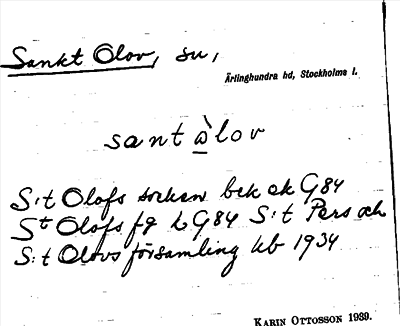 Sankt Olov, su,
Ärlinghundra hd, Stockholms l.
sant ὰlov
S:t Olofs socken bek ek G84
St Olofs fg L G84 S:t Pers och
S:t Olovs församling kb 1934
KARIN OTTOSSON 1939.